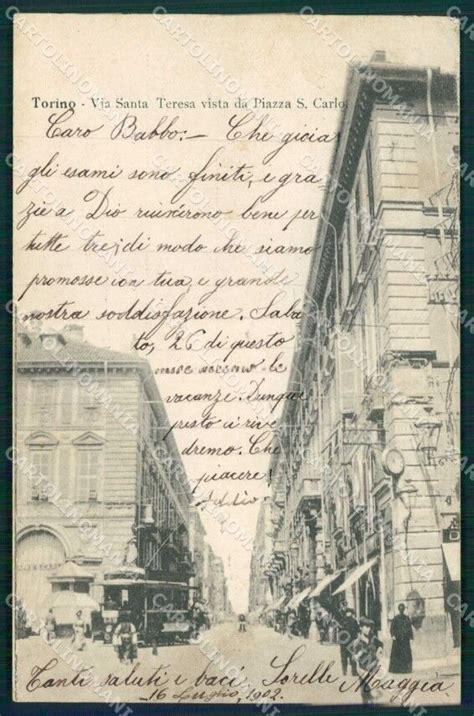 Torino - Via Santa Teresa vista da Piazza S. Carlo.
Caro Babbo:- Che gioia
gli esami sono finiti, e gra
zie a Dio riuscirono bene per
tutte tre, di modo che siamo
promosse con tua, e grande
nostra soddisfazione. Saba
to, 26 di questo
mese avremo le
vacanze. Dunque
presto ti rive
dremo. Che
piacere!
Addio
Tanti saluti e baci Sorelle Maggia
16 Luglio, 902.
CARTOLINOMANIA.IT